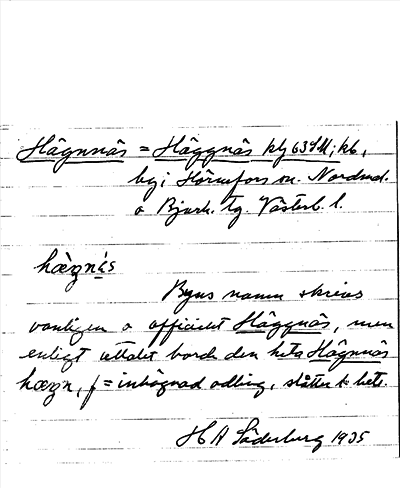 Hägnnäs = Häggnäs kbl 63 SM; kb,
by i Hörnefors sn. Nordmal.
o Bjurh. tg. Västerb. l.
hægnäs
Byns namn skrives
vanligen o officiellt Häggnäs, men
enligt uttalet borde den heta Hägnnäs
hægn, f = inhägnad odling, slåtter l. bete.
H A Söderberg 1935